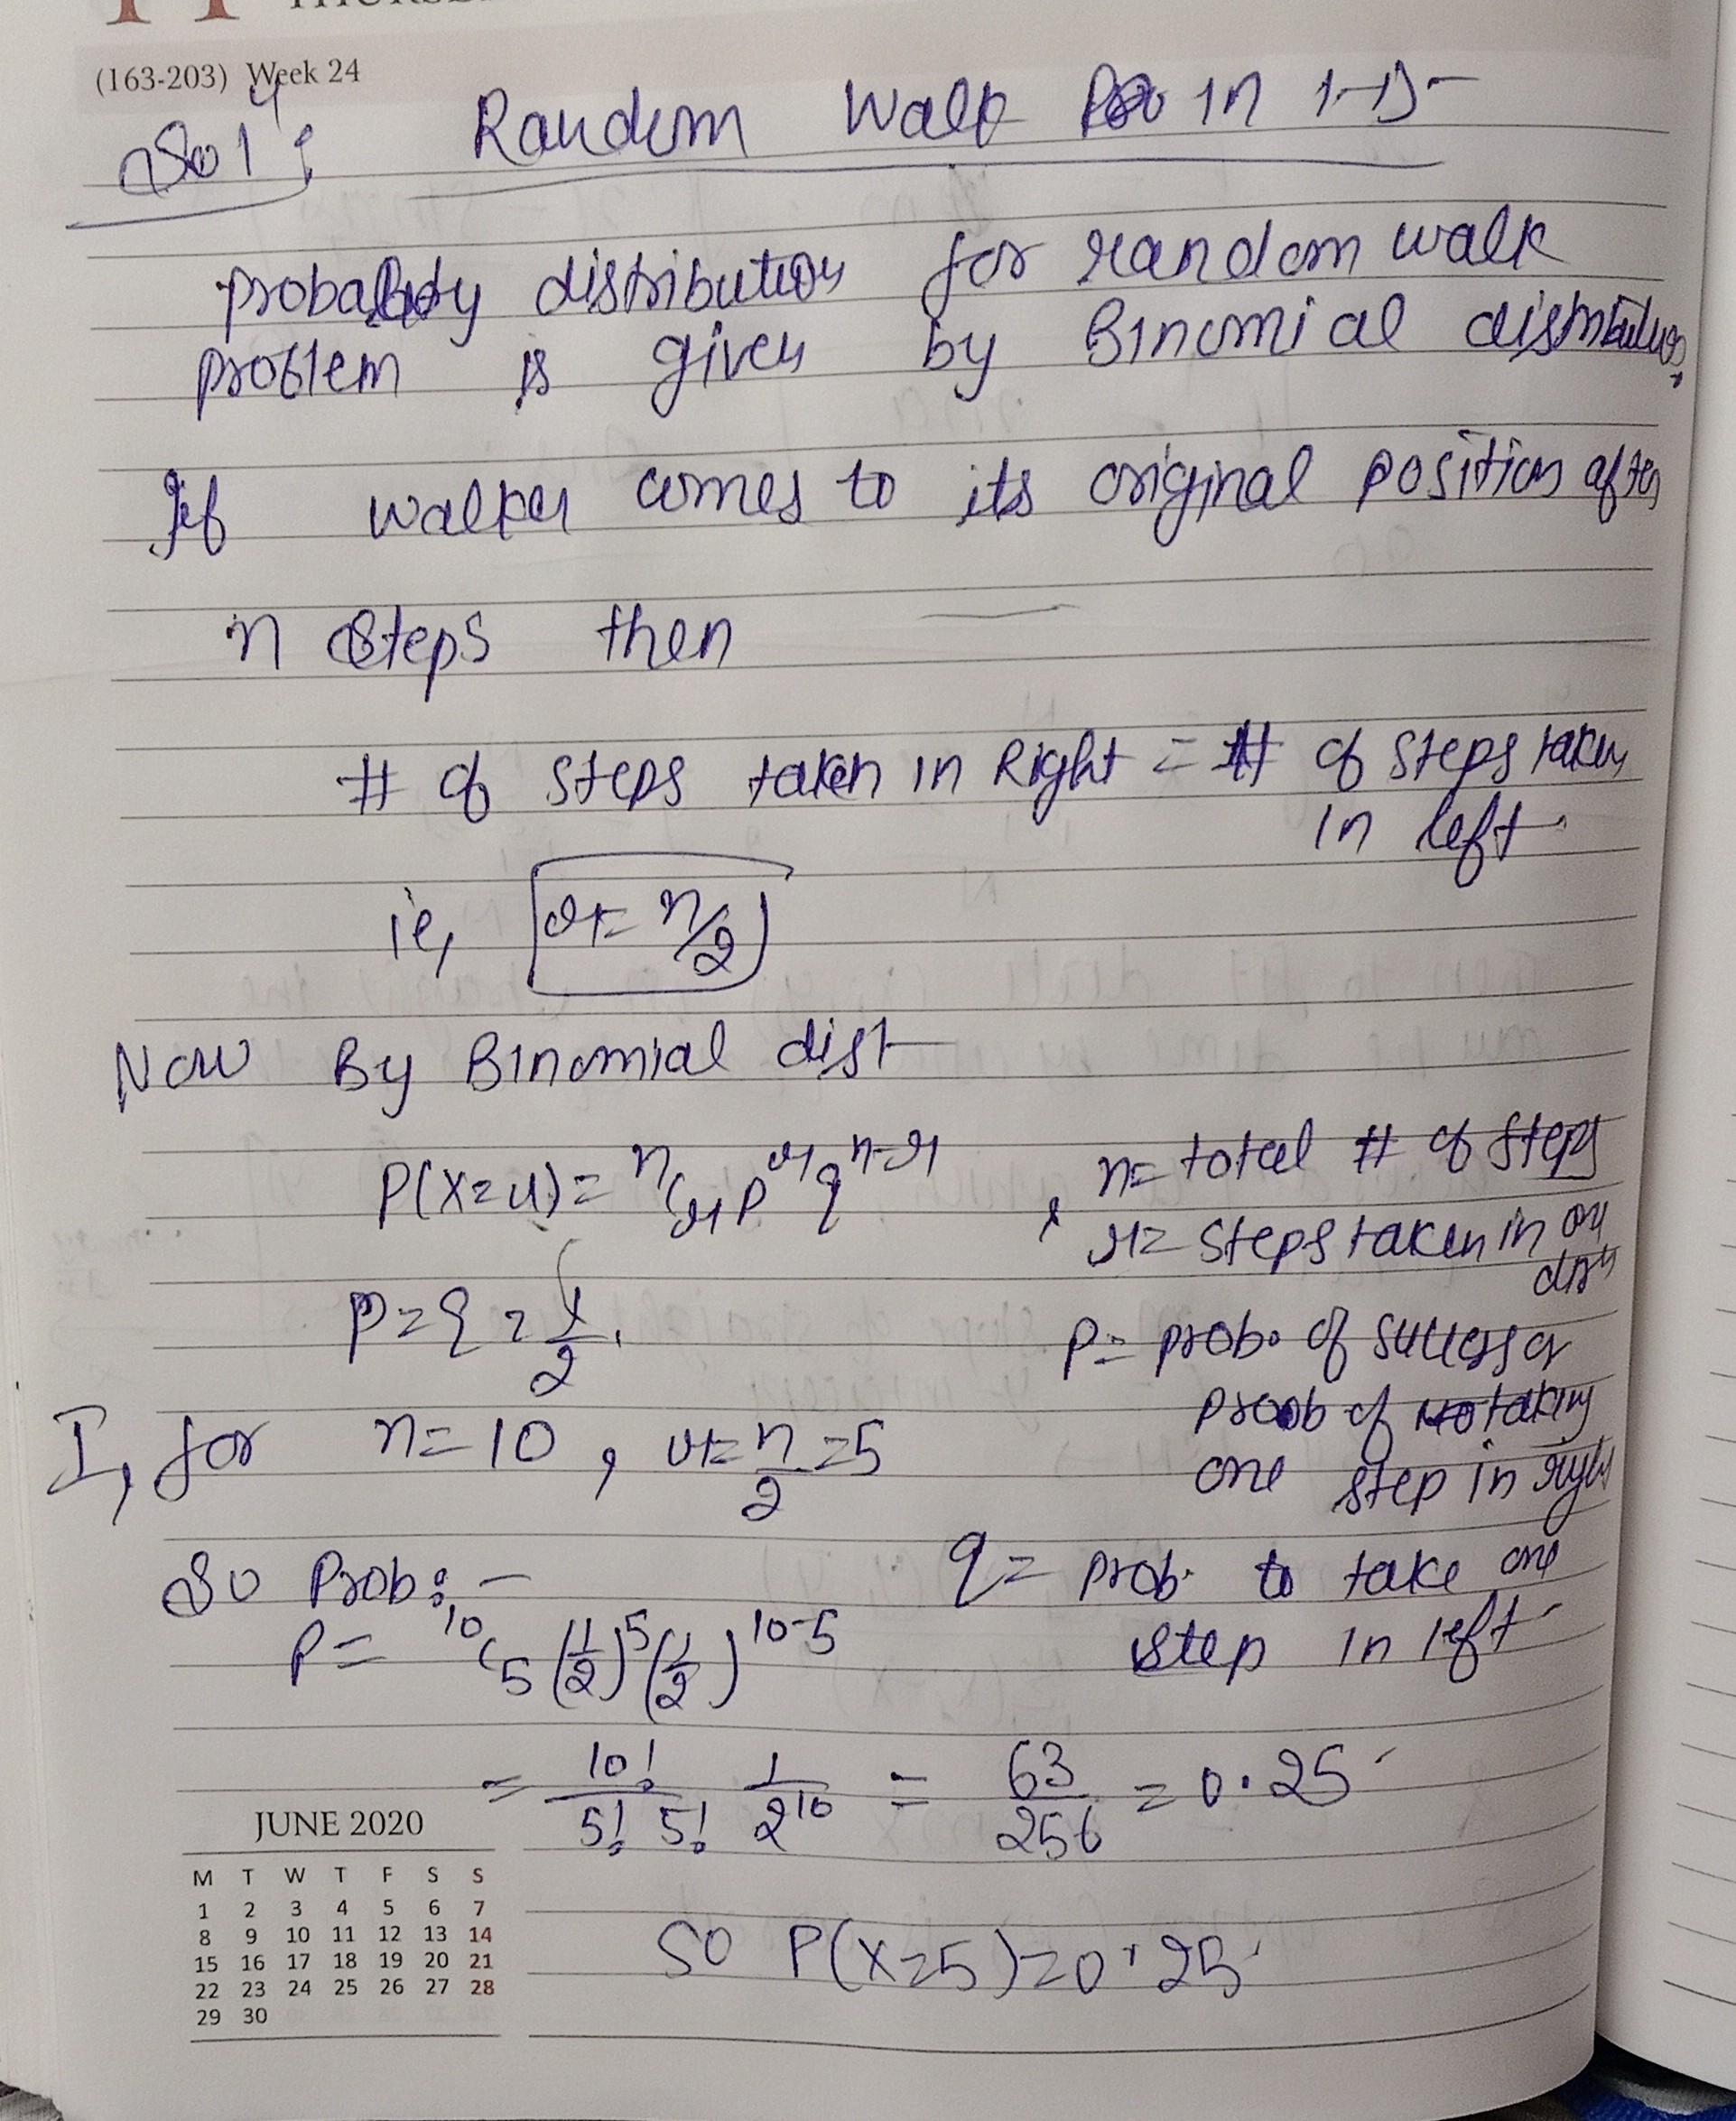 (163-203) Week 24
Soln: Random Walk in 1-D-
probability distribution for random walk
problem is given by Binomial distribution,
If walker comes to its original position after
n steps then
# of steps taken in Right = # of steps taken
in left.
ie, r = n/2
Now By Binomial dist
P(X=r) = nCr p^r q^n-r , n = total # of steps
r = steps taken in on
dirn
p = q = 1/2. p = prob. of success or
prob of taking
I, for n = 10, r = n/2 = 5
one step in right
So Prob:- q = prob. to take one
step in left
P = 10C5 (1/2)^5 (1/2)^10-5
= 10!/5! 5! 1/2^10 = 63/256 = 0.25
So P(X=5) = 0.25
JUNE 2020
M T W T F S S
1 2 3 4 5 6 7
8 9 10 11 12 13 14
15 16 17 18 19 20 21
22 23 24 25 26 27 28
29 30